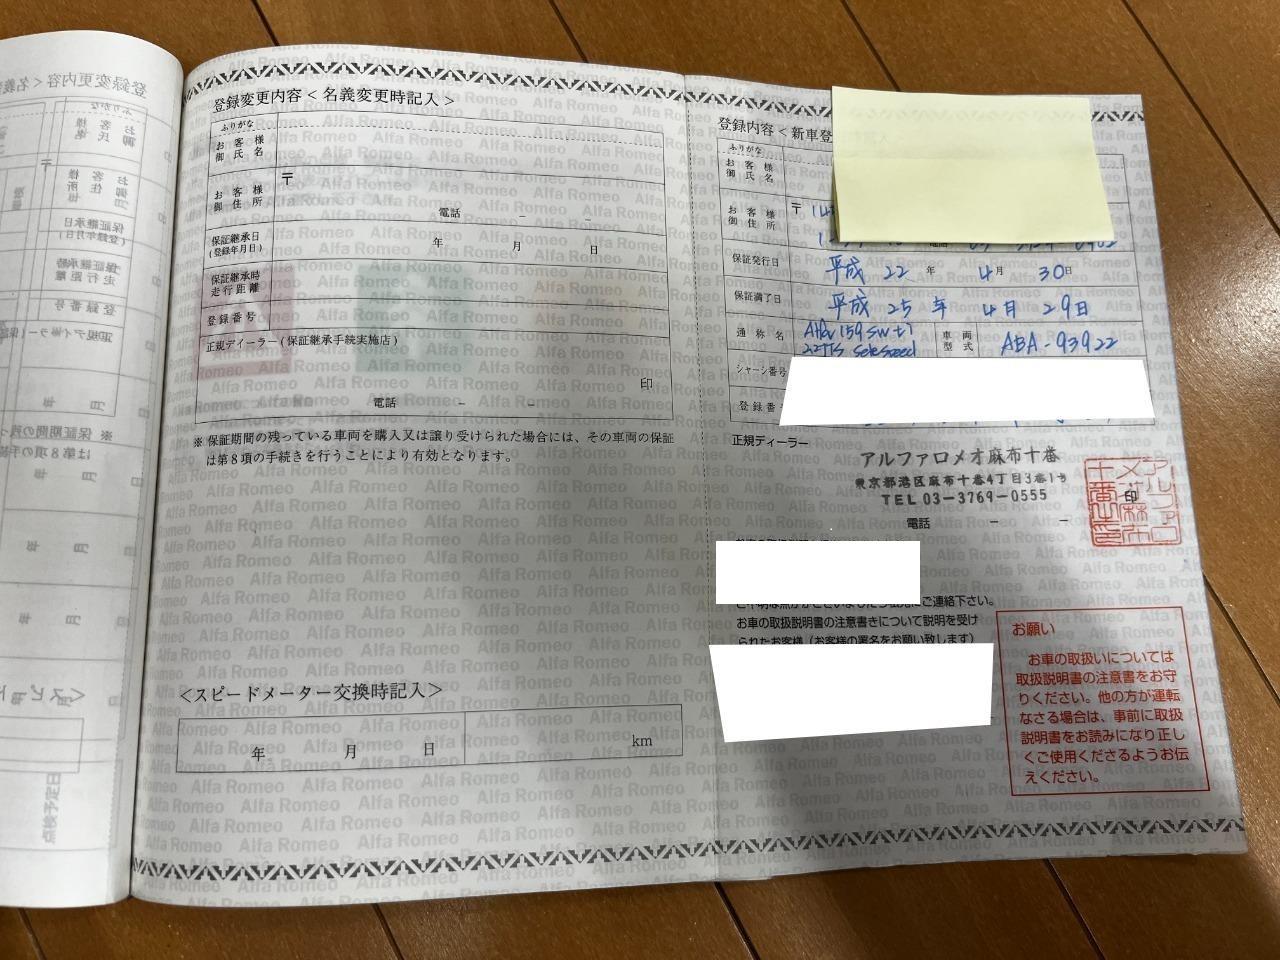 登録変更内容＜名義変更時記入＞
ふりがな
お客様
御氏名
お客様
御住所
〒
電話 － －
保証継承日
(登録年月日)
年 月 日
保証継承時
走行距離
登録番号
正規ディーラー(保証継承手続実施店)
印
電話 － －
※ 保証期間の残っている車両を購入又は譲り受けられた場合には、その車両の保証
は第8項の手続きを行うことにより有効となります。
＜スピードメーター交換時記入＞
年 月 日 km
登録内容＜新車登
ふりがな
お客様
御氏名
お客様
御住所
〒
保証発行日 平成 22 年 4月 30日
保証満了日 平成 25 年 4月 29日
通称名 Alfa 159 SW ti
22JTS selespeed
車両
型式 ABA-93922
シャーシ番号
登録番
正規ディーラー
アルファロメオ麻布十番
東京都港区麻布十番4丁目3番1号
TEL 03-3769-0555
印
電話 － －
ご連絡下さい。
お車の取扱説明書の注意書きについて説明を受け
られたお客様(お客様の署名をお願い致します)
お願い
お車の取扱いについては
取扱説明書の注意書をお守
りください。他の方が運転
なさる場合は、事前に取扱
説明書をお読みになり正し
くご使用くださるようお伝
えください。